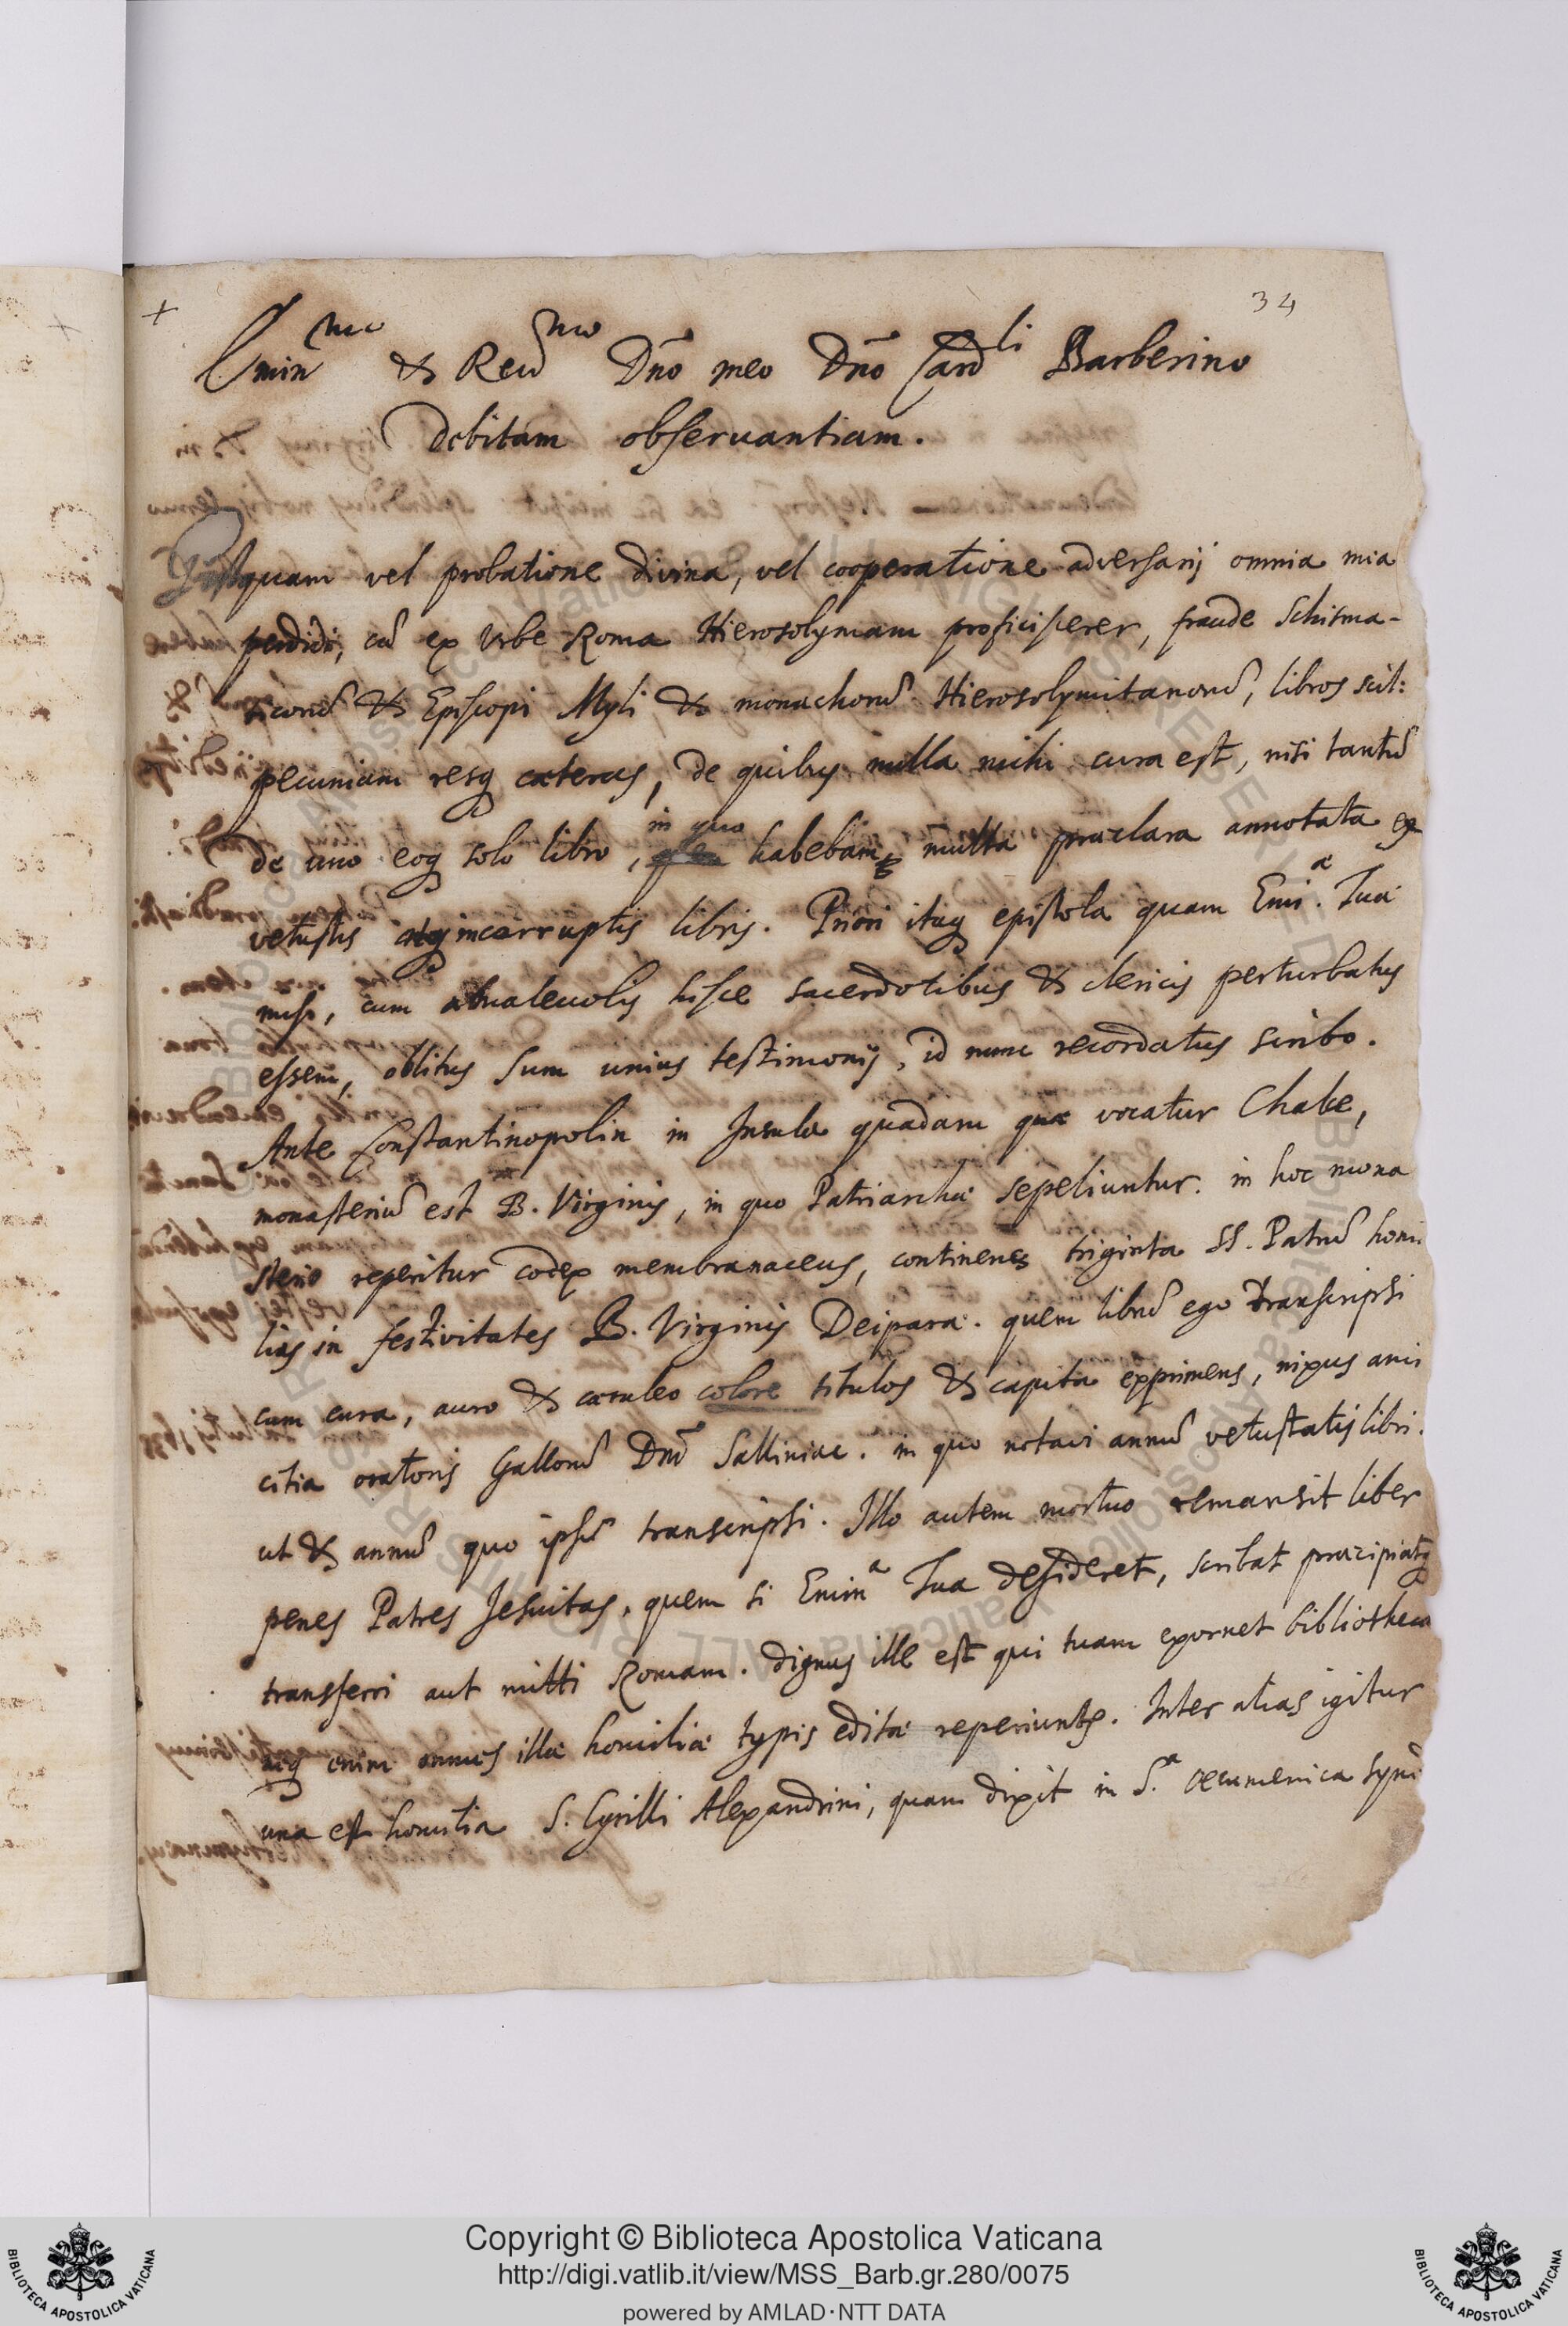 34
Emin^mo & Reu^mo Dño meo Dño Card^li Barberino
Debitam obseruantiam.
Postquam vel probatione divina, vel cooperatione adversarij omnia mia
perdidi, cũ ex Vrbe Roma Hierosolymam proficiscerer, fraude Schisma-
ticorũ & Episcopi Myli & monachorũ Hierosolymitanorũ, libros scil:
pecuniam resq cæteras, de quibus nulla mihi cura est, nisi tantũ
de uno eoq solo libro, in quo habebam multa præclara annotata ex
vetustis atq incorruptis libris. Priori itaq epistola quam Emi.^æ Tuæ
misi, cum a malevolis hisce sacerdotibus & clericis perturbatus
essem, oblitus sum unius testimonij, id nunc recordatus scribo.
Ante Constantinopolin in Insula quadam quæ vocatur Chalce,
monasteriũ est B. Virginis, in quo Patriarchæ sepeliuntur. in hoc mona
sterio reperitur codex membranaceus, continens triginta SS. Patrũ homi
lias in festivitates B. Virginis Deiparæ. quem librũ ego transcripsi
cum cura, auro & cæruleo colore titulos & capita exprimens, nixus ami
citia oratoris Gallorũ Dñi Salliniac. in quo notavi annũ vetustatis libri.
ut & annũ quo ipsũ transcripsi. Illo autem mortuo remansit liber
penes Patres Jesuitas, quem si Emin^a Tua desideret, scribat præcipiatq
transferri aut mitti Romam. dignus ille est qui tuam exornet bibliothecã
neq enim omnes illæ homiliæ typis editæ reperiuntr. Inter alias igitur
una est homilia S. Cyrilli Alexandrini, quam dixit in S.^a œcumenica syno
Copyright © Biblioteca Apostolica Vaticana
http://digi.vatlib.it/view/MSS_Barb.gr.280/0075
powered by AMLAD·NTT DATA
BIBLIOTECA APOSTOLICA VATICANA
BIBLIOTECA APOSTOLICA VATICANA